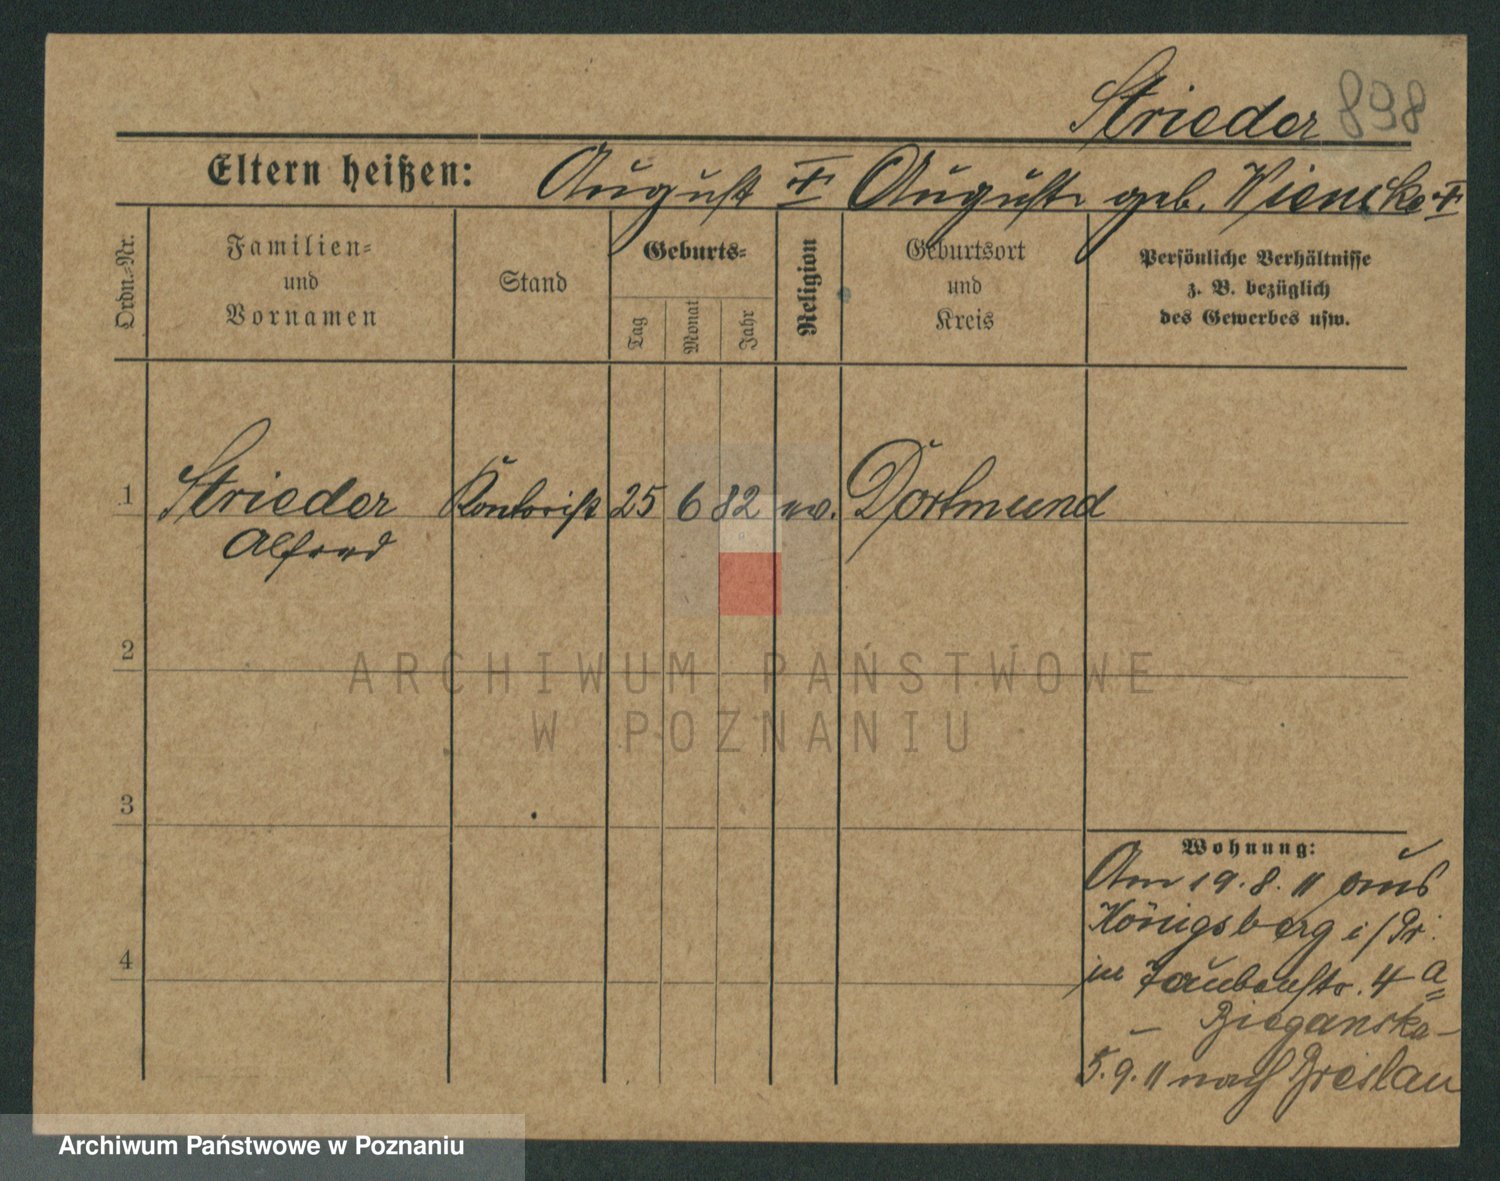 Strieder 898
Eltern heißen: August † Auguste geb. †
Ordn.-Nr.
Familien-
und
Vornamen
Stand
Geburts-
Tag
Monat
Jahr
Religion
Geburtsort
und
Kreis
Persönliche Verhältnisse
z. B. bezüglich
des Gewerbes usw.
1 Strieder Kontorist 25 6 82 ev. Dortmund
Alfred
2
ARCHIWUM PAŃSTWOWE
W POZNANIU
3
Wohnung:
Am 19.8.11 aus
Königsberg i/Pr.
in Taubenstr. 4a
4
– Bieganska –
5.9.11 nach Breslau
Archiwum Państwowe w Poznaniu